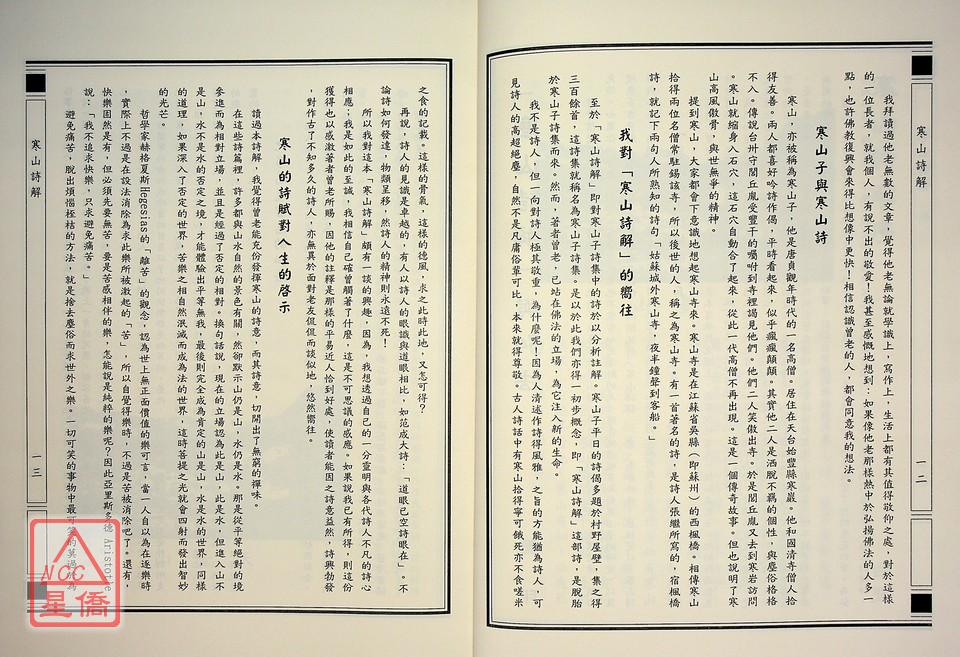 寒山詩解
一二
我拜讀過他老無數的文章，覺得他老無論就學識上，寫作上，生活上都有其值得敬仰之處，對於這樣
的一位長者，就我個人，有說不出的敬愛！我甚至感慨地想到：如果像他老那樣熱中於弘揚佛法的人多一
點，也許佛教復興會來得比想像中更快！相信認識曾老的人，都會同意我的想法。
寒山子與寒山詩
寒山，亦被稱為寒山子，他是唐貞觀年時代的一名高僧。居住在天台始豐縣寒巖。他和國清寺僧人拾
得友善。兩人都喜好吟詩作偈，平時看起來，似乎瘋瘋顛顛。其實他二人是洒脫不羈的個性，與塵俗格格
不入。傳說台州守閭丘胤受豐干的囑咐到寺裡謁見他們。他們二人笑傲出寺。於是閭丘胤又去到寒岩訪問
。寒山就縮身入石穴，這石穴自動合了起來，從此一代高僧不再出現。這是一個傳奇故事。但也說明了寒
山高風傲骨，與世無爭的精神。
提到寒山，大家都會下意識地想起寒山寺來。寒山寺是在江蘇省吳縣（即蘇州）的西楓橋。相傳寒山
拾得兩位名僧常駐錫該寺，所以後世的人，稱之為寒山寺。有一首著名的詩，是詩人張繼所寫的，宿楓橋
詩，就記下兩句人所熟知的詩句「姑蘇城外寒山寺，夜半鐘聲到客船。」
我對「寒山詩解」的嚮往
至於「寒山詩解」即對寒山子詩集中的詩於以分析註解。寒山子平日的詩偈多題於村野屋壁，集之得
三百餘首，這詩集就稱名為寒山子詩集。是以於此我們亦得一初步概念，即「寒山詩解」這部詩，是脫胎
於寒山子詩集而來。然而，著者曾老，已站在佛法的立場，為它注入新的生命。
我不是詩人，但一向對詩人極其敬重，為什麼呢！因為人清述作詩得風雅，之旨的方能猶為詩人，可
見詩人的高超絕塵，自然不是凡庸俗輩可比，本來就得尊敬。古人詩話中有寒山拾得寧可餓死亦不食嗟米
之食的記載。這樣的骨氣，這樣的德風，求之此時此地，又怎可得？
再說，詩人的見識是卓越的，有人以詩人的眼識與道眼相比，如范成大詩：「道眼已空詩眼在」。不
論詩如何發達，物類呈移，然詩人的精神則永遠不死！
所以我對這本「寒山詩解」頗有一談的興趣，因為，我想透過自己的一分靈明與各代詩人不凡的詩心
相應，我是如此的至誠，我相信自己確曾觸著了什麼，這是不可思議的感應。如果說我已有所得，則這份
獲得也以感激著者曾老所賜，因他的註釋是那樣的平易近人恰到好處，使讀者能因之詩意益然，詩興勃發
，對作古了不知多久的詩人，亦無異於面對老友侃侃而談似地，悠然嚮往。
寒山的詩賦對人生的啓示
讀過本詩解，我覺得曾老能充份發揮寒山的詩意，而其詩意，切開出了無窮的禪味。
在這些詩篇裡，許多都與山水自然的景色有關，然卻默示山仍是山，水仍是水。那是從平等絕對的境
參進而為相對立場，並且是經過了否定的相對。換句話說，現在的立場認為此是山，此是水，但進入山不
是山，水不是水的否定之境，才能體驗出平等無我，最後則完全成為肯定的山是山，水是水的世界，同樣
的道理，如果深入了否定的世界，苦樂之相自然泯滅而成為法的世界，這時菩提之光就會四射而發出智妙
的光芒。
哲學家赫格夏斯Hegesias的「離苦」的觀念，認為世上無正面價值的樂可言，當一人自以為在逐樂時
，實際上不過是在設法消除為求此樂所被激起的「苦」，所以自覺得樂時，不過是苦被消除吧了。還有，
快樂固然是有，但必須先要無苦，要是苦感相伴的樂，怎能說是純粹的樂呢？因此亞里斯多德 Aristotle
說：「我不追求快樂，只求避免痛苦。」
避免痛苦，脫出煩惱桎梏的方法，就是捨去塵俗而求世外之樂。一切可笑的事物中最可笑的莫過於為
寒山詩解
一三
NCC
星僑